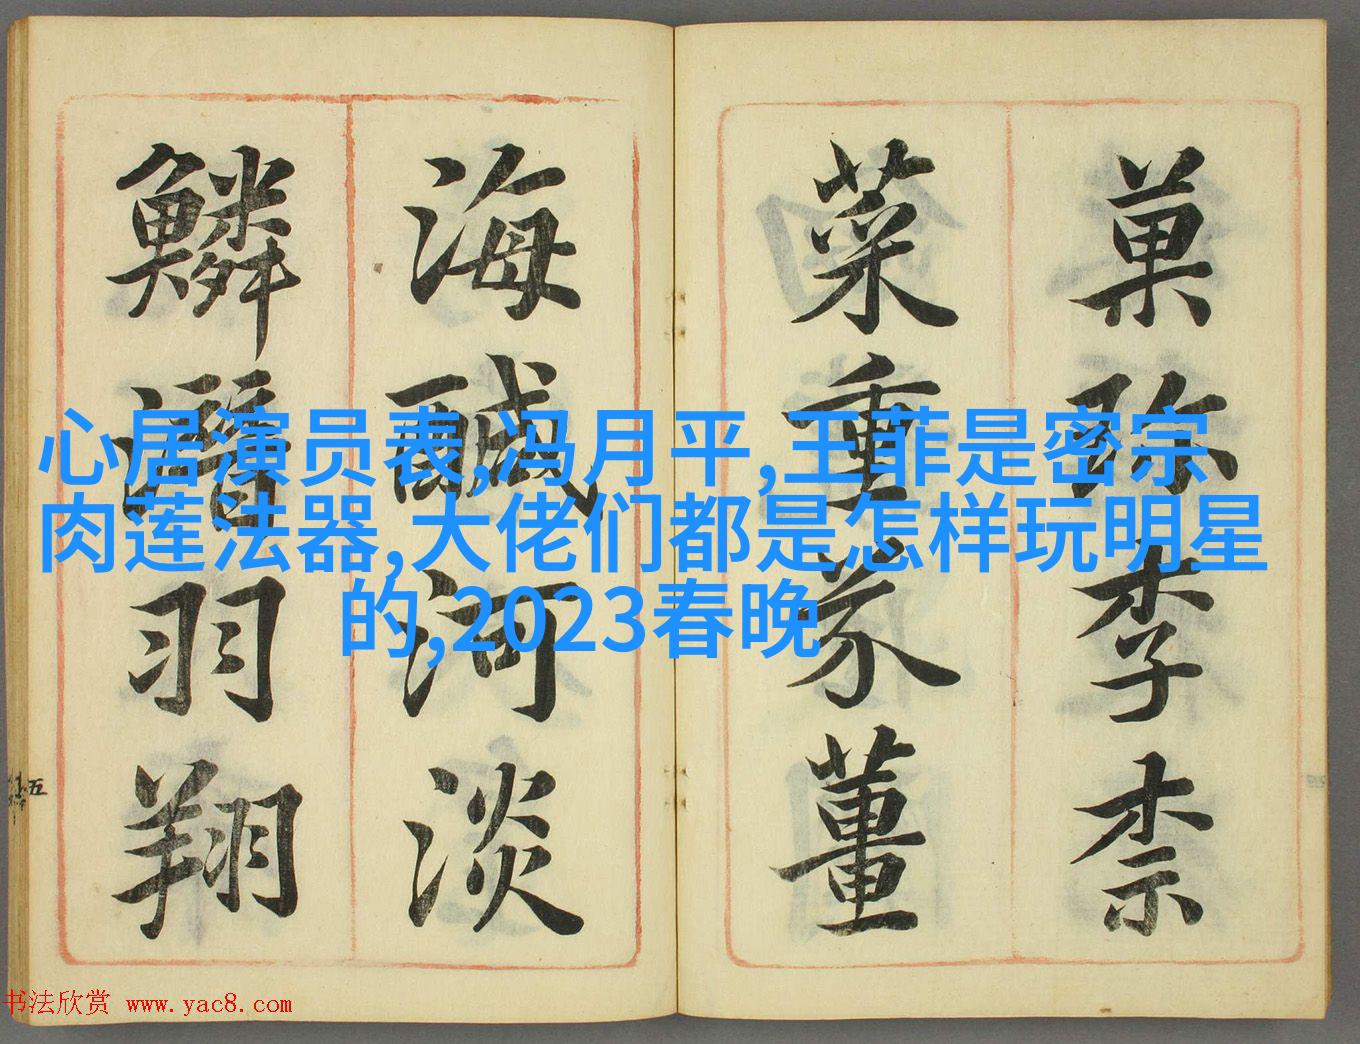 菓珍李柰
菜重芥薑
海鹹河淡
鱗潛羽翔
心居演员表,冯月平,王菲是密宗
肉莲法器,大佬们都是怎样玩明星
的,2023春晚
五
书法欣赏 www.yac8.com